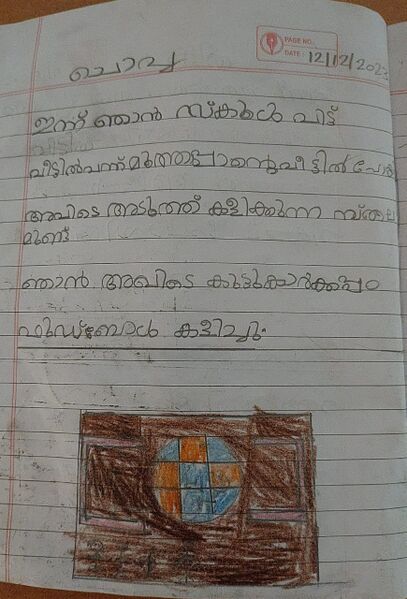 PAGE NO.
DATE: 12/12/2023
ചൊവ്വ
ഇന്ന് ഞാൻ സ്കൂൾ വിട്ട്
വീട്ടിൽ വന്ന് മുത്തപ്പാന്റെ വീട്ടിൽ പോയി
അവിടെ അടുത്ത് കളിക്കുന്ന സ്ഥല
മുണ്ട്
ഞാൻ അവിടെ കൂട്ടുകാർക്കൊപ്പം
ഫുഡ്ബോൾ കളിച്ചു.